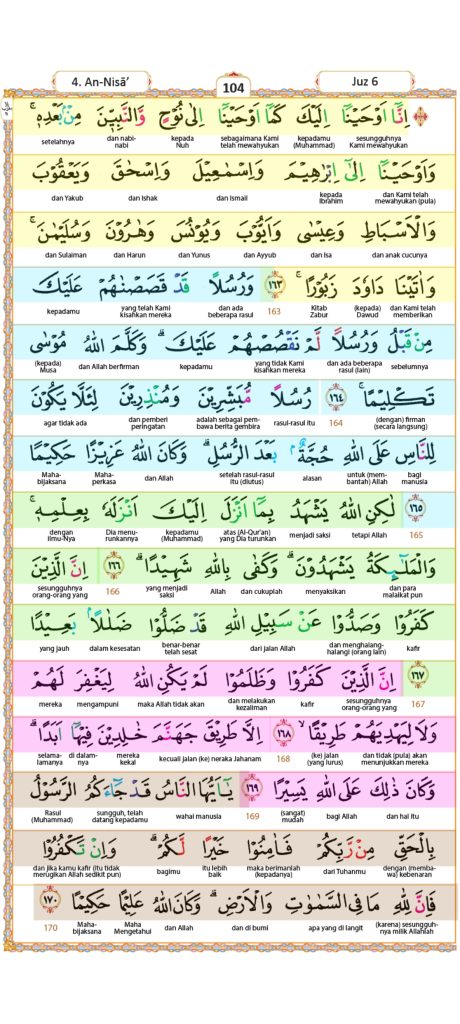 4. An-Nisā’
104
Juz 6
اِنَّآ اَوْحَيْنَآ اِلَيْكَ كَمَآ اَوْحَيْنَآ اِلٰى نُوْحٍ وَّالنَّبِيّٖنَ مِنْۢ بَعْدِهٖۚ
sesungguhnya Kami mewahyukan kepadamu (Muhammad) sebagaimana Kami telah mewahyukan kepada Nuh dan nabi-nabi setelahnya
وَاَوْحَيْنَآ اِلٰٓى اِبْرٰهِيْمَ وَاِسْمٰعِيْلَ وَاِسْحٰقَ وَيَعْقُوْبَ
dan Kami telah mewahyukan (pula) kepada Ibrahim dan Ismail dan Ishak dan Yakub
وَالْاَسْبَاطِ وَعِيْسٰى وَاَيُّوْبَ وَيُوْنُسَ وَهٰرُوْنَ وَسُلَيْمٰنَۚ
dan anak cucunya dan Isa dan Ayyub dan Yunus dan Harun dan Sulaiman
وَاٰتَيْنَا دَاوٗدَ زَبُوْرًاۚ ١٦٣ وَرُسُلًا قَدْ قَصَصْنٰهُمْ عَلَيْكَ
dan Kami telah memberikan (kepada) Dawud Kitab Zabur 163 dan ada beberapa rasul yang telah Kami kisahkan mereka kepadamu
مِنْ قَبْلُ وَرُسُلًا لَّمْ نَقْصُصْهُمْ عَلَيْكَۗ وَكَلَّمَ اللّٰهُ مُوْسٰى
sebelumnya dan ada beberapa rasul (lain) yang tidak Kami kisahkan mereka kepadamu dan Allah berfirman (kepada) Musa
تَكْلِيْمًاۚ ١٦٤ رُسُلًا مُّبَشِّرِيْنَ وَمُنْذِرِيْنَ لِئَلَّا يَكُوْنَ
(dengan) firman (secara langsung) 164 rasul-rasul itu adalah sebagai pembawa berita gembira dan pemberi peringatan agar tidak ada
لِلنَّاسِ عَلَى اللّٰهِ حُجَّةٌ ۢ بَعْدَ الرُّسُلِۗ وَكَانَ اللّٰهُ عَزِيْزًا حَكِيْمًا
bagi manusia untuk (membantah) Allah alasan setelah rasul-rasul itu (diutus) dan Allah Mahaperkasa Mahabijaksana
١٦٥ لٰكِنِ اللّٰهُ يَشْهَدُ بِمَآ اَنْزَلَ اِلَيْكَ اَنْزَلَهٗ بِعِلْمِهٖۚ
165 tetapi Allah menjadi saksi atas (Al-Qur'an) yang Dia turunkan kepadamu (Muhammad) Dia menurunkannya dengan Ilmu-Nya
وَالْمَلٰۤىِٕكَةُ يَشْهَدُوْنَۗ وَكَفٰى بِاللّٰهِ شَهِيْدًاۗ ١٦٦ اِنَّ الَّذِيْنَ
dan para malaikat pun menyaksikan dan cukuplah Allah yang menjadi saksi 166 sesungguhnya orang-orang yang
كَفَرُوْا وَصَدُّوْا عَنْ سَبِيْلِ اللّٰهِ قَدْ ضَلُّوْا ضَلٰلًا ۢ بَعِيْدًا
kafir dan menghalang-halangi (orang lain) dari jalan Allah benar-benar telah sesat dalam kesesatan yang jauh
١٦٧ اِنَّ الَّذِيْنَ كَفَرُوْا وَظَلَمُوْا لَمْ يَكُنِ اللّٰهُ لِيَغْفِرَ لَهُمْ
167 sesungguhnya orang-orang yang kafir dan melakukan kezaliman maka Allah tidak akan mengampuni mereka
وَلَا لِيَهْدِيَهُمْ طَرِيْقًاۙ ١٦٨ اِلَّا طَرِيْقَ جَهَنَّمَ خٰلِدِيْنَ فِيْهَآ اَبَدًاۗ
dan tidak (pula) akan menunjukkan mereka (ke) jalan (yang lurus) 168 kecuali jalan (ke) neraka Jahanam mereka kekal di dalamnya selama-lamanya
وَكَانَ ذٰلِكَ عَلَى اللّٰهِ يَسِيْرًا ١٦٩ يٰٓاَيُّهَا النَّاسُ قَدْ جَاۤءَكُمُ الرَّسُوْلُ
dan hal itu bagi Allah (sangat) mudah 169 wahai manusia sungguh, telah datang kepadamu Rasul (Muhammad)
بِالْحَقِّ مِنْ رَّبِّكُمْ فَاٰمِنُوْا خَيْرًا لَّكُمْۗ وَاِنْ تَكْفُرُوْا
dengan (membawa) kebenaran dari Tuhanmu maka berimanlah (kepadanya) itu lebih baik bagimu dan jika kamu kafir (itu tidak merugikan Allah sedikit pun)
فَاِنَّ لِلّٰهِ مَا فِى السَّمٰوٰتِ وَالْاَرْضِۗ وَكَانَ اللّٰهُ عَلِيْمًا حَكِيْمًا ١٧٠
(karena) sesungguhnya milik Allahlah apa yang di langit dan di bumi dan Allah Maha Mengetahui Mahabijaksana 170